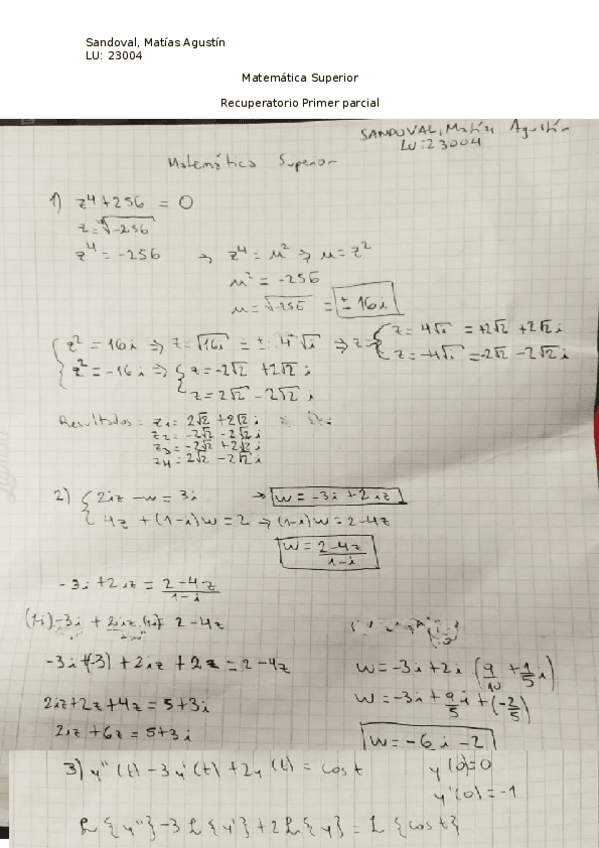 Sandoval, Matías Agustín
LU: 23004
Matemática Superior
Recuperatorio Primer parcial
SANDOVAL, Matías Agustín
LU: 23004
Matemática Superior
1) z⁴ + 256 = 0
z = ⁴√-256
z⁴ = -256 → z⁴ = μ² ⇒ μ = z²
μ² = -256
μ = √-256 = ± 16i
{ z² = 16i ⇒ z = √16i = ± 4√i ⇒ z = { z = 4√i = +2√2 + 2√2 i
z = -4√i = -2√2 - 2√2 i
z² = -16i ⇒ { z = -2√2 + 2√2 i
z = 2√2 - 2√2 i
Resultados = z₁ = 2√2 + 2√2 i
z₂ = -2√2 - 2√2 i
z₃ = -2√2 + 2√2 i
z₄ = 2√2 - 2√2 i
2) { 2iz - w = 3i → w = -3i + 2iz
4z + (1-i)w = 2 → (1-i)w = 2-4z
w = (2-4z)/(1-i)
-3i + 2iz = (2-4z)/(1-i)
(1-i)-3i + 2iz.(1-i) = 2-4z
-3i+(-3) + 2iz + 2z = 2-4z
2iz+2z+4z = 5+3i
2iz + 6z = 5+3i
w = -3i + 2i (9/10 + 1/5 i)
w = -3i + 9/5 i + (-2/5)
w = -6i - 2
3) y''(t) - 3y'(t) + 2y(t) = cos t y(0)=0
y'(0) = -1
ℒ{y''} - 3ℒ{y'} + 2ℒ{y} = ℒ{cos t}